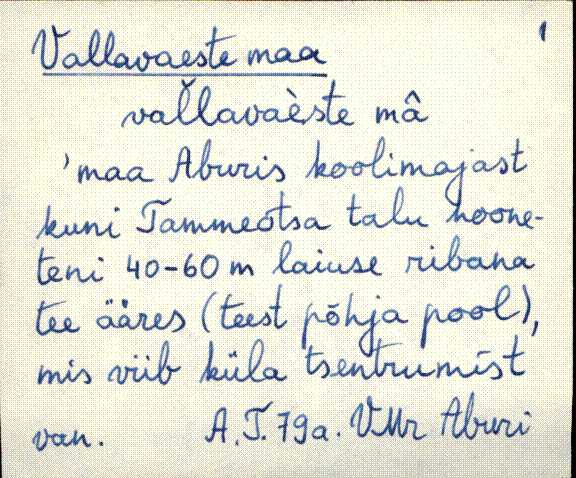 1
Vallavaeste maa
val̆lavaèste mâ
'maa Aburis koolimajast
kuni Tammeotsa talu hoone-
teni 40-60 m laiuse ribana
tee ääres (teest põhja pool),
mis viib küla tsentrumist
van. A.T. 79a. VMr Aburi